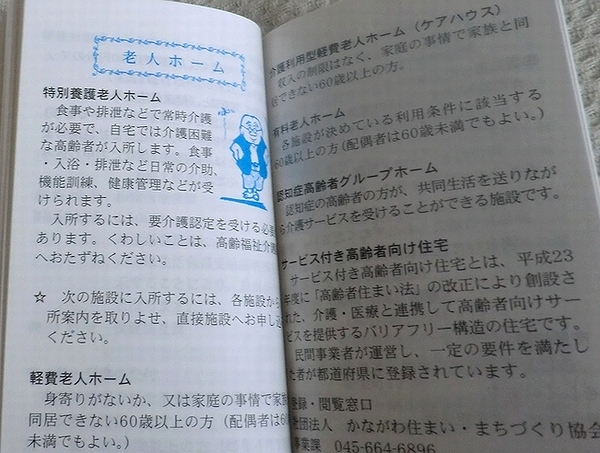 老人ホーム
特別養護老人ホーム
食事や排泄などで常時介護
が必要で、自宅では介護困難
な高齢者が入所します。食事
・入浴・排泄など日常の介助、
機能訓練、健康管理などが受
けられます。
入所するには、要介護認定を受ける必要
あります。くわしいことは、高齢福祉介護
へおたずねください。
☆ 次の施設に入所するには、各施設から
所案内を取りよせ、直接施設へお申し込
ください。
軽費老人ホーム
身寄りがないか、又は家庭の事情で家族
同居できない60歳以上の方(配偶者は60
未満でもよい。)
介護利用型軽費老人ホーム(ケアハウス)
収入の制限はなく、家庭の事情で家族と同
居できない60歳以上の方。
有料老人ホーム
各施設が決めている利用条件に該当する
60歳以上の方(配偶者は60歳未満でもよい。)
認知症高齢者グループホーム
認知症の高齢者の方が、共同生活を送りなが
ら介護サービスを受けることができる施設です。
サービス付き高齢者向け住宅
サービス付き高齢者向け住宅とは、平成23
年度に「高齢者住まい法」の改正により創設さ
れた、介護・医療と連携して高齢者向けサー
ビスを提供するバリアフリー構造の住宅です。
民間事業者が運営し、一定の要件を満たし
た者が都道府県に登録されています。
登録・閲覧窓口
社団法人 かながわ住まい・まちづくり協会
事業課 045-664-6896